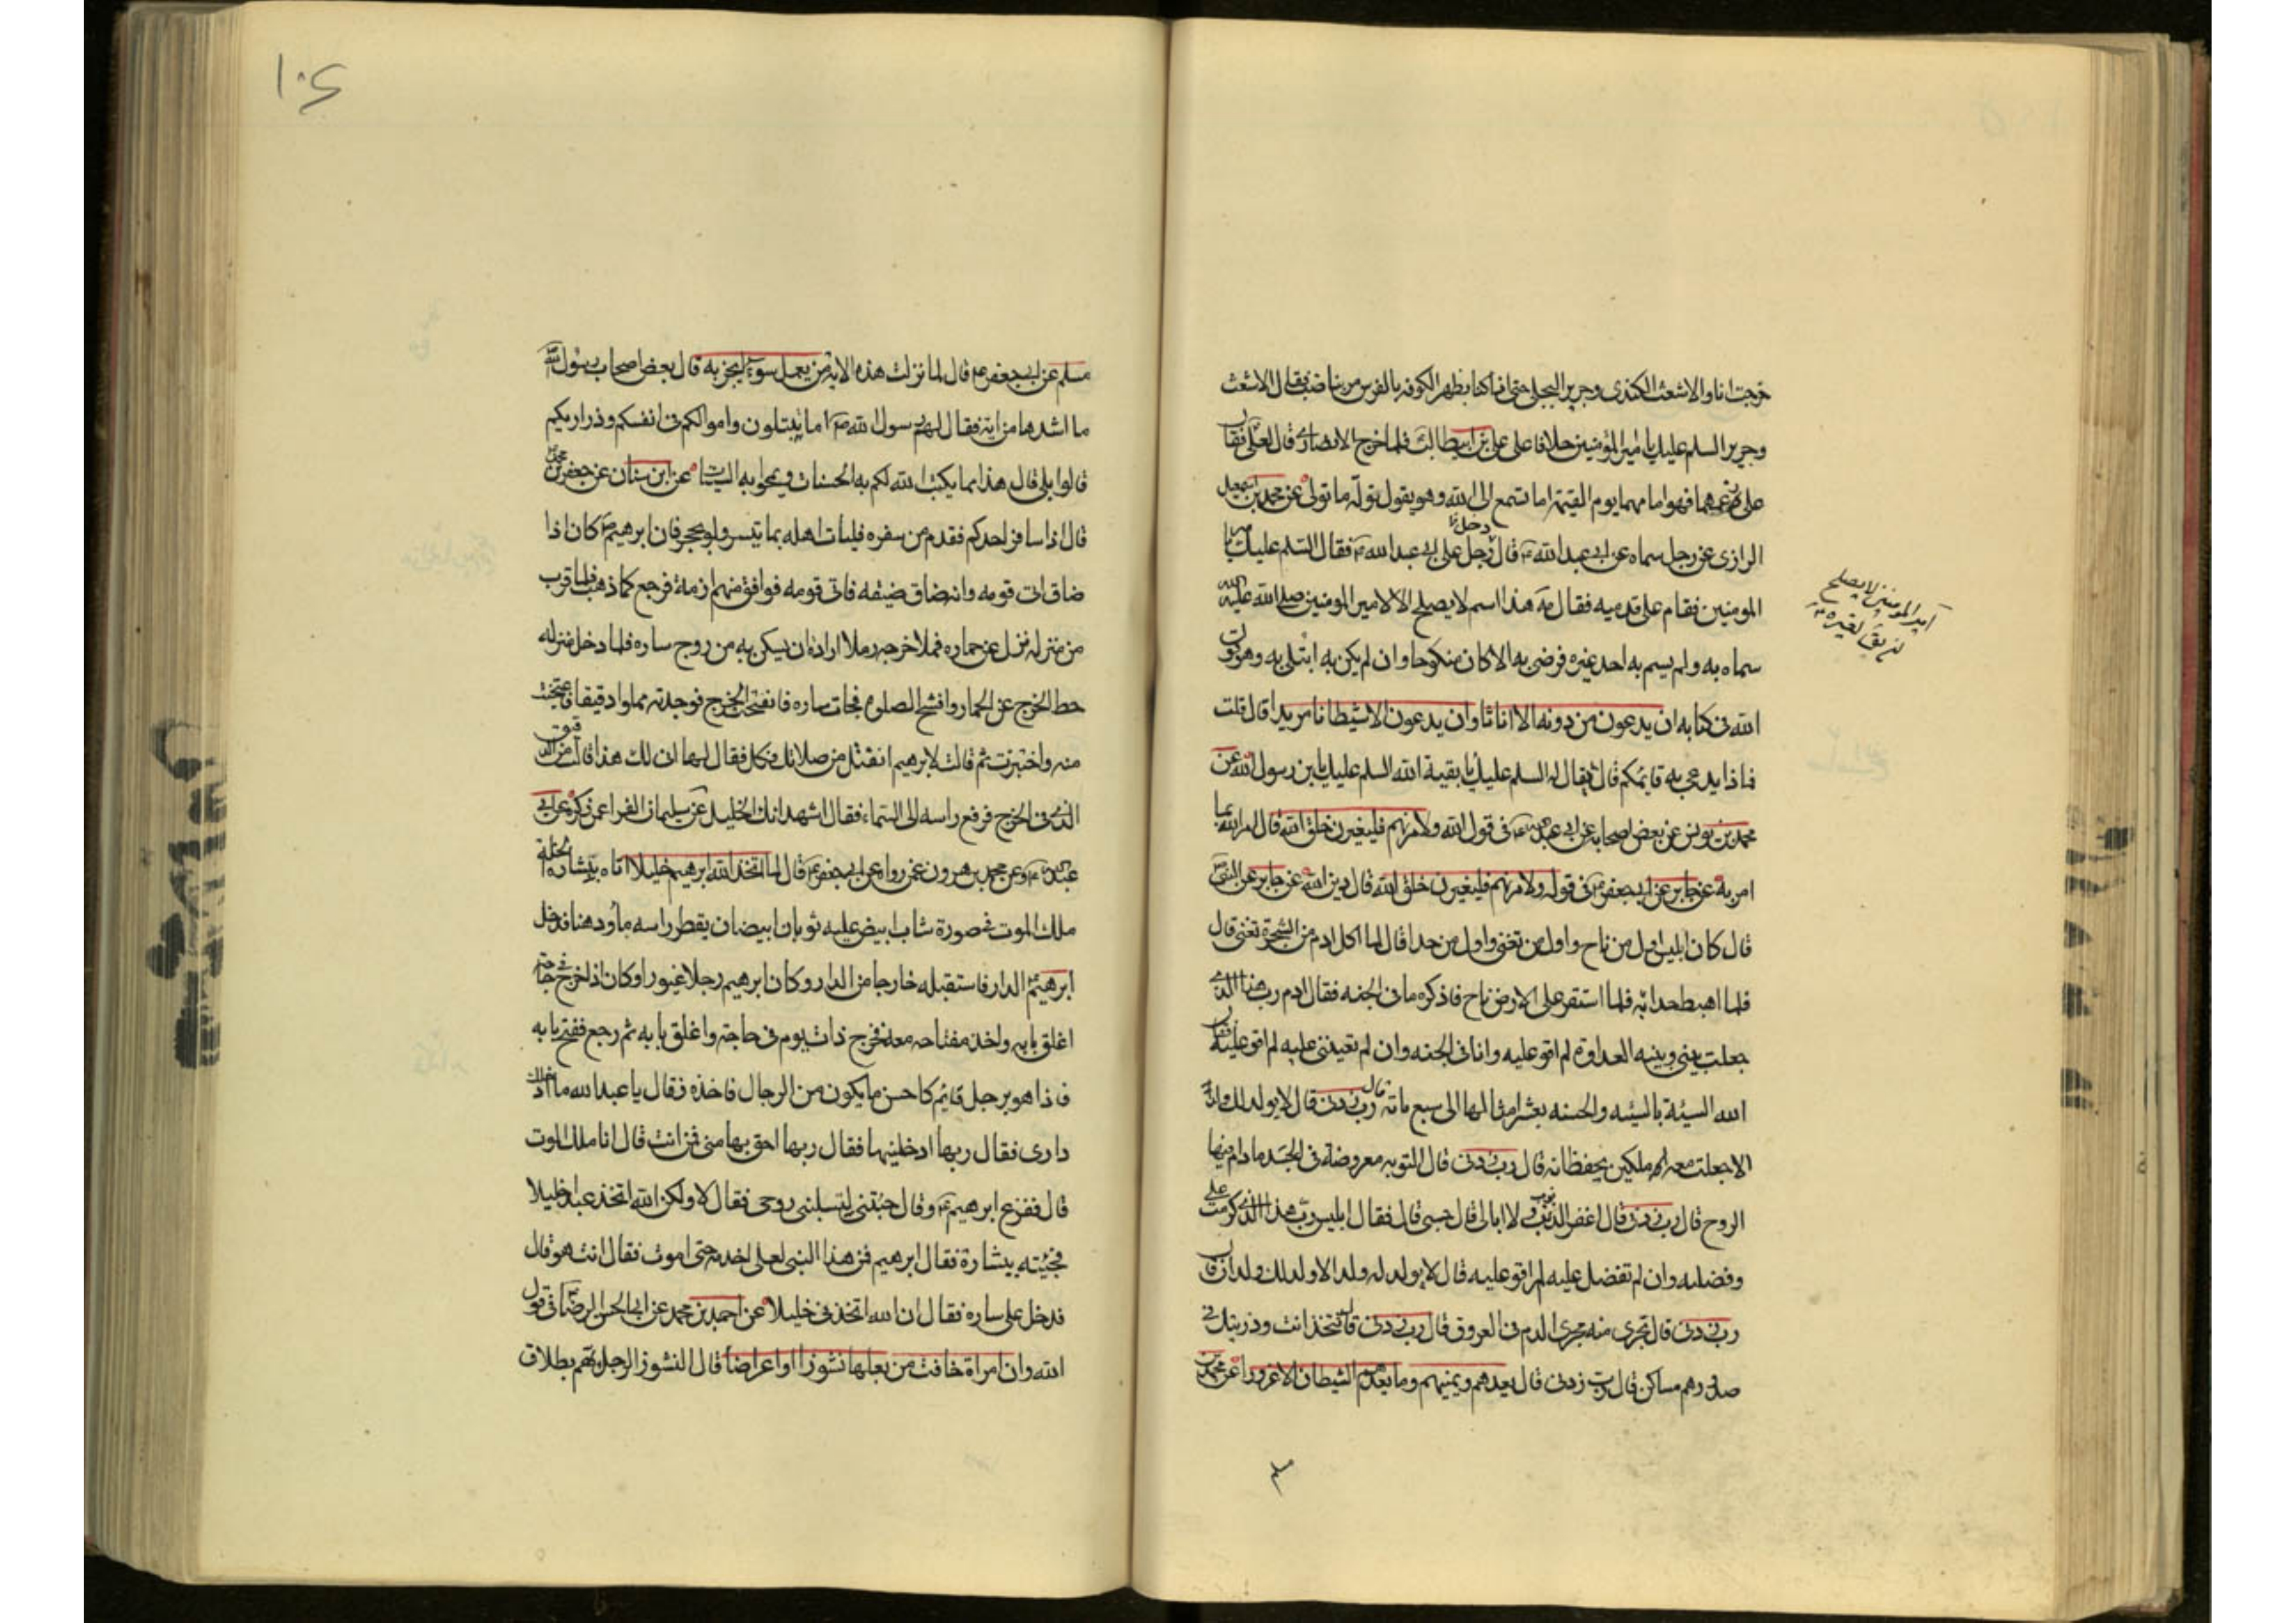 خرجت انا والاشعث الكندى وجرير البجلى حتى اذا كنا بظهر الكوفه بالفرس مر بنا ضب فقال الاشعث
وجرير السلم عليك يا امير المؤمنين خلافا على على بن ابيطالب فلما خرج الانصارى قال لعلى فقال
على دعهما فهو امامهما يوم القيمة اما تسمع الى الله وهو يقول نوله ما تولى عن محمد بن اسمعيل
الرازى عن رجل سماه عن ابى عبد الله ع قال دخل رجل على ابى عبد الله ع فقال السلم عليك يا امير
المومنين فقام على قدميه فقال مه هذا اسم لا يصلح الا لامير المومنين صلى الله عليه الله
سماه به ولم يسم به احد غيره فرضى به الا كان منكوحا وان لم يكن به ابتلى به وهو قول
الله فى كتابه ان يدعون من دونه الا اناثا وان يدعون الا شيطانا مريدا قال قلت
فماذا يدعى به قايمكم قال يقال له السلم عليك يا بقية الله السلم عليك يا بن رسول الله عن
محمد بن يونس عن بعض اصحابه عن ابى عبد الله ع فى قول الله ولامرنهم فليغيرن خلق الله قال امر الله بما
امر به عن جابر عن ابى جعفر ع فى قوله ولامرنهم فليغيرن خلق الله قال دين الله عن جابر عن النبى ص
قال كان ابليس اول من ناح واول من تغنى واول من حدا قال لما اكل ادم من الشجرة تغنى قال
فلما اهبط حدا به فلما استقر على الارض ناح فاذكره ما فى الجنه فقال ادم رب هذا الذى
جعلت بينى وبينه العداوة لم اقو عليه وانا فى الجنه وان لم تعيننى عليه لم اقو عليه فقال
الله السيئة بالسيئه والحسنه بعشر امثالها الى سبع مائة قال رب زدنى قال لا يولد لك ولد
الا جعلت معه ملكين يحفظانه قال رب زدنى قال التوبه معروضة فى الجسد مادام فيها
الروح قال رب زدنى قال اغفر الذنوب ولا ابالى قال حسبى قال فقال ابليس رب هذا الذى كرمت على
وفضلته وان لم تفضل عليه لم اقو عليه قال لا يولد له ولد الا ولد لك ولدان قال
رب زدنى قال تجرى منه مجرى الدم فى العروق قال رب زدنى قال تتخذ انت وذريتك فى
صدورهم مساكن قال رب زدنى قال يعدهم ويمنيهم وما يعدهم الشيطان الا غرورا عن محمد بن
مسلم
امير المومنين لا يصلح
ان يق لغيره ع
١٠٤
مسلم عن ابى جعفر ع قال لما نزلت هذه الاية من يعمل سوء يجز به قال بعض اصحاب رسول الله
ما اشدها من اية فقال لهم رسول الله ص اما تبتلون واموالكم فى انفسكم وذراريكم
قالوا بلى قال هذا مما يكتب الله لكم به الحسنات ويمحو به السيئات عن ابن سنان عن جعفر بن محمد
قال اذا سافر احدكم فقدم من سفره فليات اهله بما تيسر ولو بحجر فان ابرهيم ص كان اذا
ضاق اتى قومه وانه ضاق ضيقه فاتى قومه فوافق منهم ازمة فرجع كما ذهب فلما قرب
من منزله نزل عن حماره فملا خرجه رملا اراد ان يسكن به من روح ساره فلما دخل منزله
حط الخرج عن الحمار وافتتح الصلوة فجات ساره فانفتحت الخرج فوجدته مملوا دقيقا فاعتجنت
منه واختبزت ثم قالت لابرهيم انفتل من صلاتك فكل فقال لها انى لك هذا قالت من الدقيق
الذى فى الخرج فرفع راسه الى السماء فقال اشهد انك الخليل عن سليمان الفرا عمن ذكره عن ابى
عبد الله ع وعن محمد بن هرون عمن رواه عن ابى جعفر ع قال لما اتخذ الله ابرهيم خليلا اتاه بشارة الخلة
ملك الموت فى صورة شاب ابيض عليه ثوبان ابيضان يقطر راسه ماء ودهنا فدخل
ابرهيم الدار فاستقبله خارجا من الدار وكان ابرهيم رجلا غيورا وكان اذا خرج فى حاجة
اغلق بابه واخذ مفتاحه معه فخرج ذات يوم فى حاجة واغلق بابه ثم رجع ففتح بابه
فاذا هو برجل قايم كاحسن ما يكون من الرجال فاخذه فقال يا عبد الله ما ادخلك
دارى فقال ربها ادخلنيها فقال ربها احق بها منى فمن انت قال انا ملك الموت
قال ففزع ابرهيم ع وقال جئتنى لتسلبنى روحى فقال لا ولكن الله اتخذ عبدا خليلا
فجئته ببشارة فقال ابرهيم فمن هذا لعلى اخدمه حتى اموت فقال انت هو قال
فدخل على ساره فقال ان الله اتخذنى خليلا عن احمد بن محمد عن ابى الحسن الرضا ع فى قول
الله وان امراة خافت من بعلها نشوزا او اعراضا قال النشوز الرجل يهم بطلاق